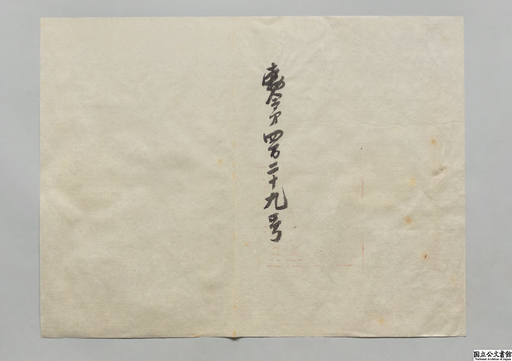 勅令第四百二十九号
国立公文書館
National Archives of Japan